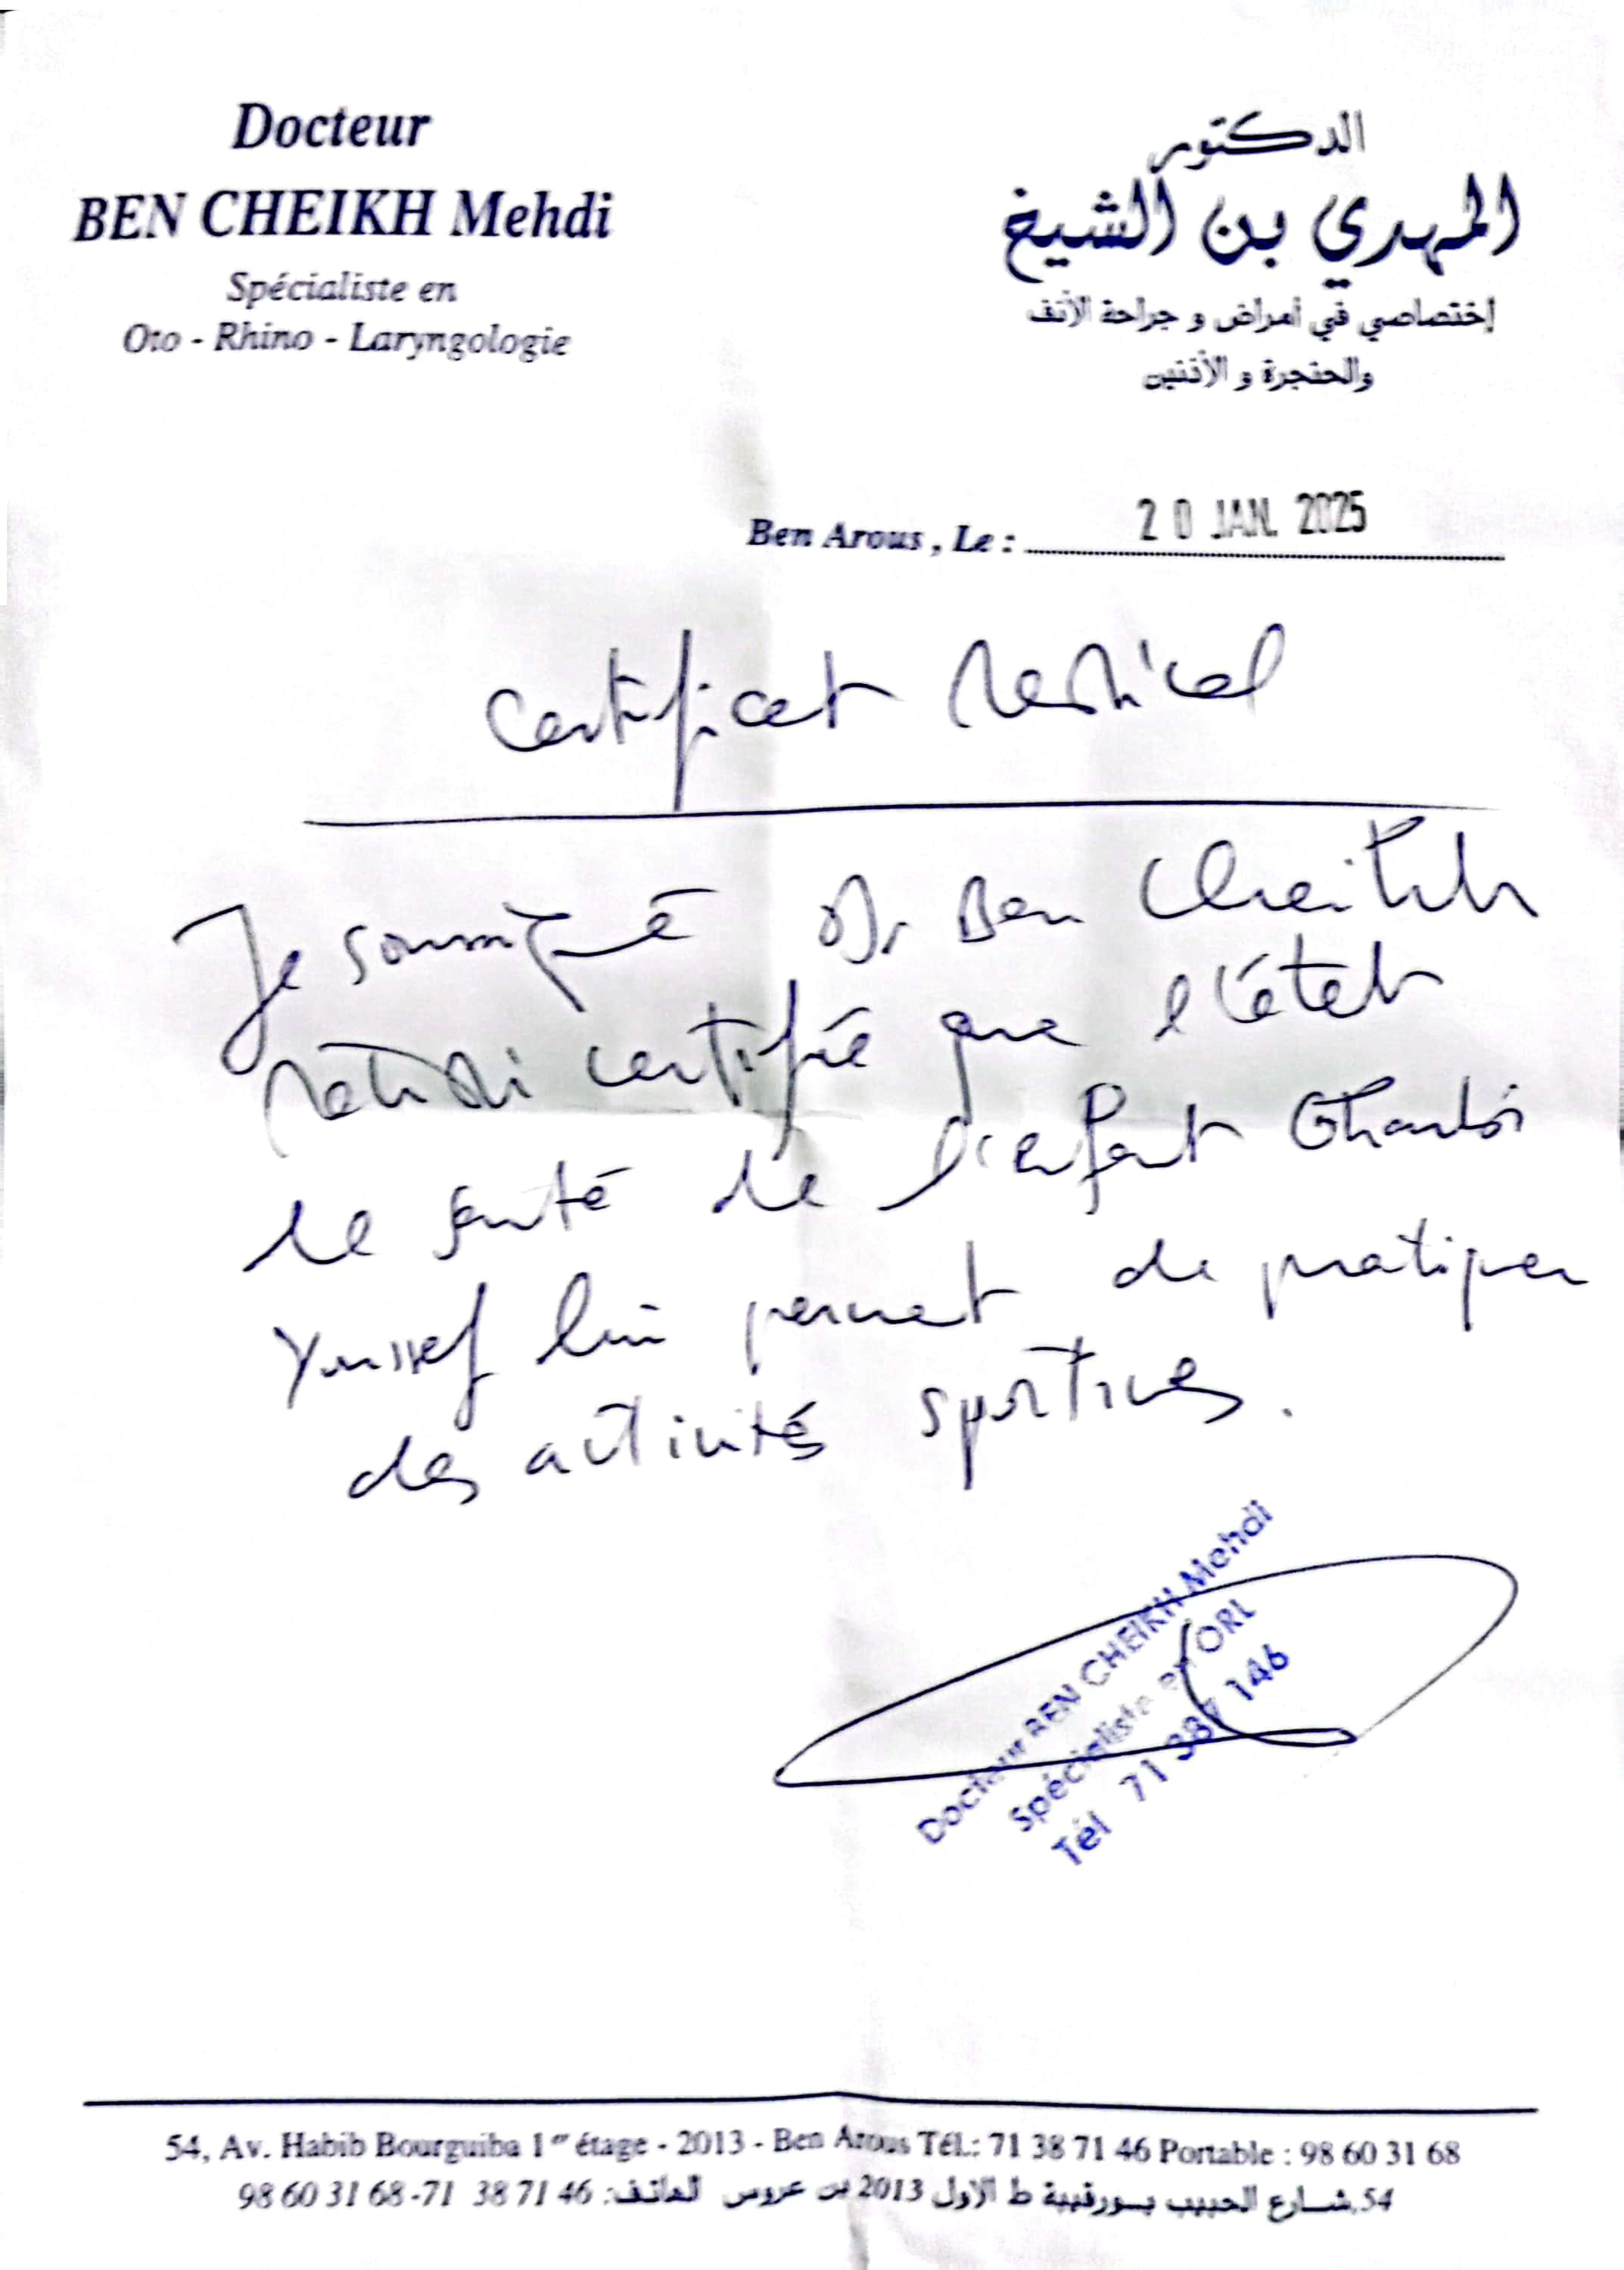 Docteur
BEN CHEIKH Mehdi
Spécialiste en
Oto - Rhino - Laryngologie
الدكتور
المهدي بن الشيخ
إختصاصي في أمراض و جراحة الأنف
والحنجرة و الأذنين
Ben Arous , Le : 20 JAN. 2025
Certificat Medical
Je soussigné Dr Ben Cheikh
Mehdi certifie que l'état
de santé de l'enfant Gharbi
Youssef lui permet de pratiquer
des activités sportives.
Docteur BEN CHEIKH Mehdi
Spécialiste en ORL
Tél 71 387 146
54, Av. Habib Bourguiba 1er étage - 2013 - Ben Arous Tél.: 71 38 71 46 Portable : 98 60 31 68
54,شارع الحبيب بورقيبة ط الاول 2013 بن عروس الهاتف: 46 71 38 71- 68 31 60 98